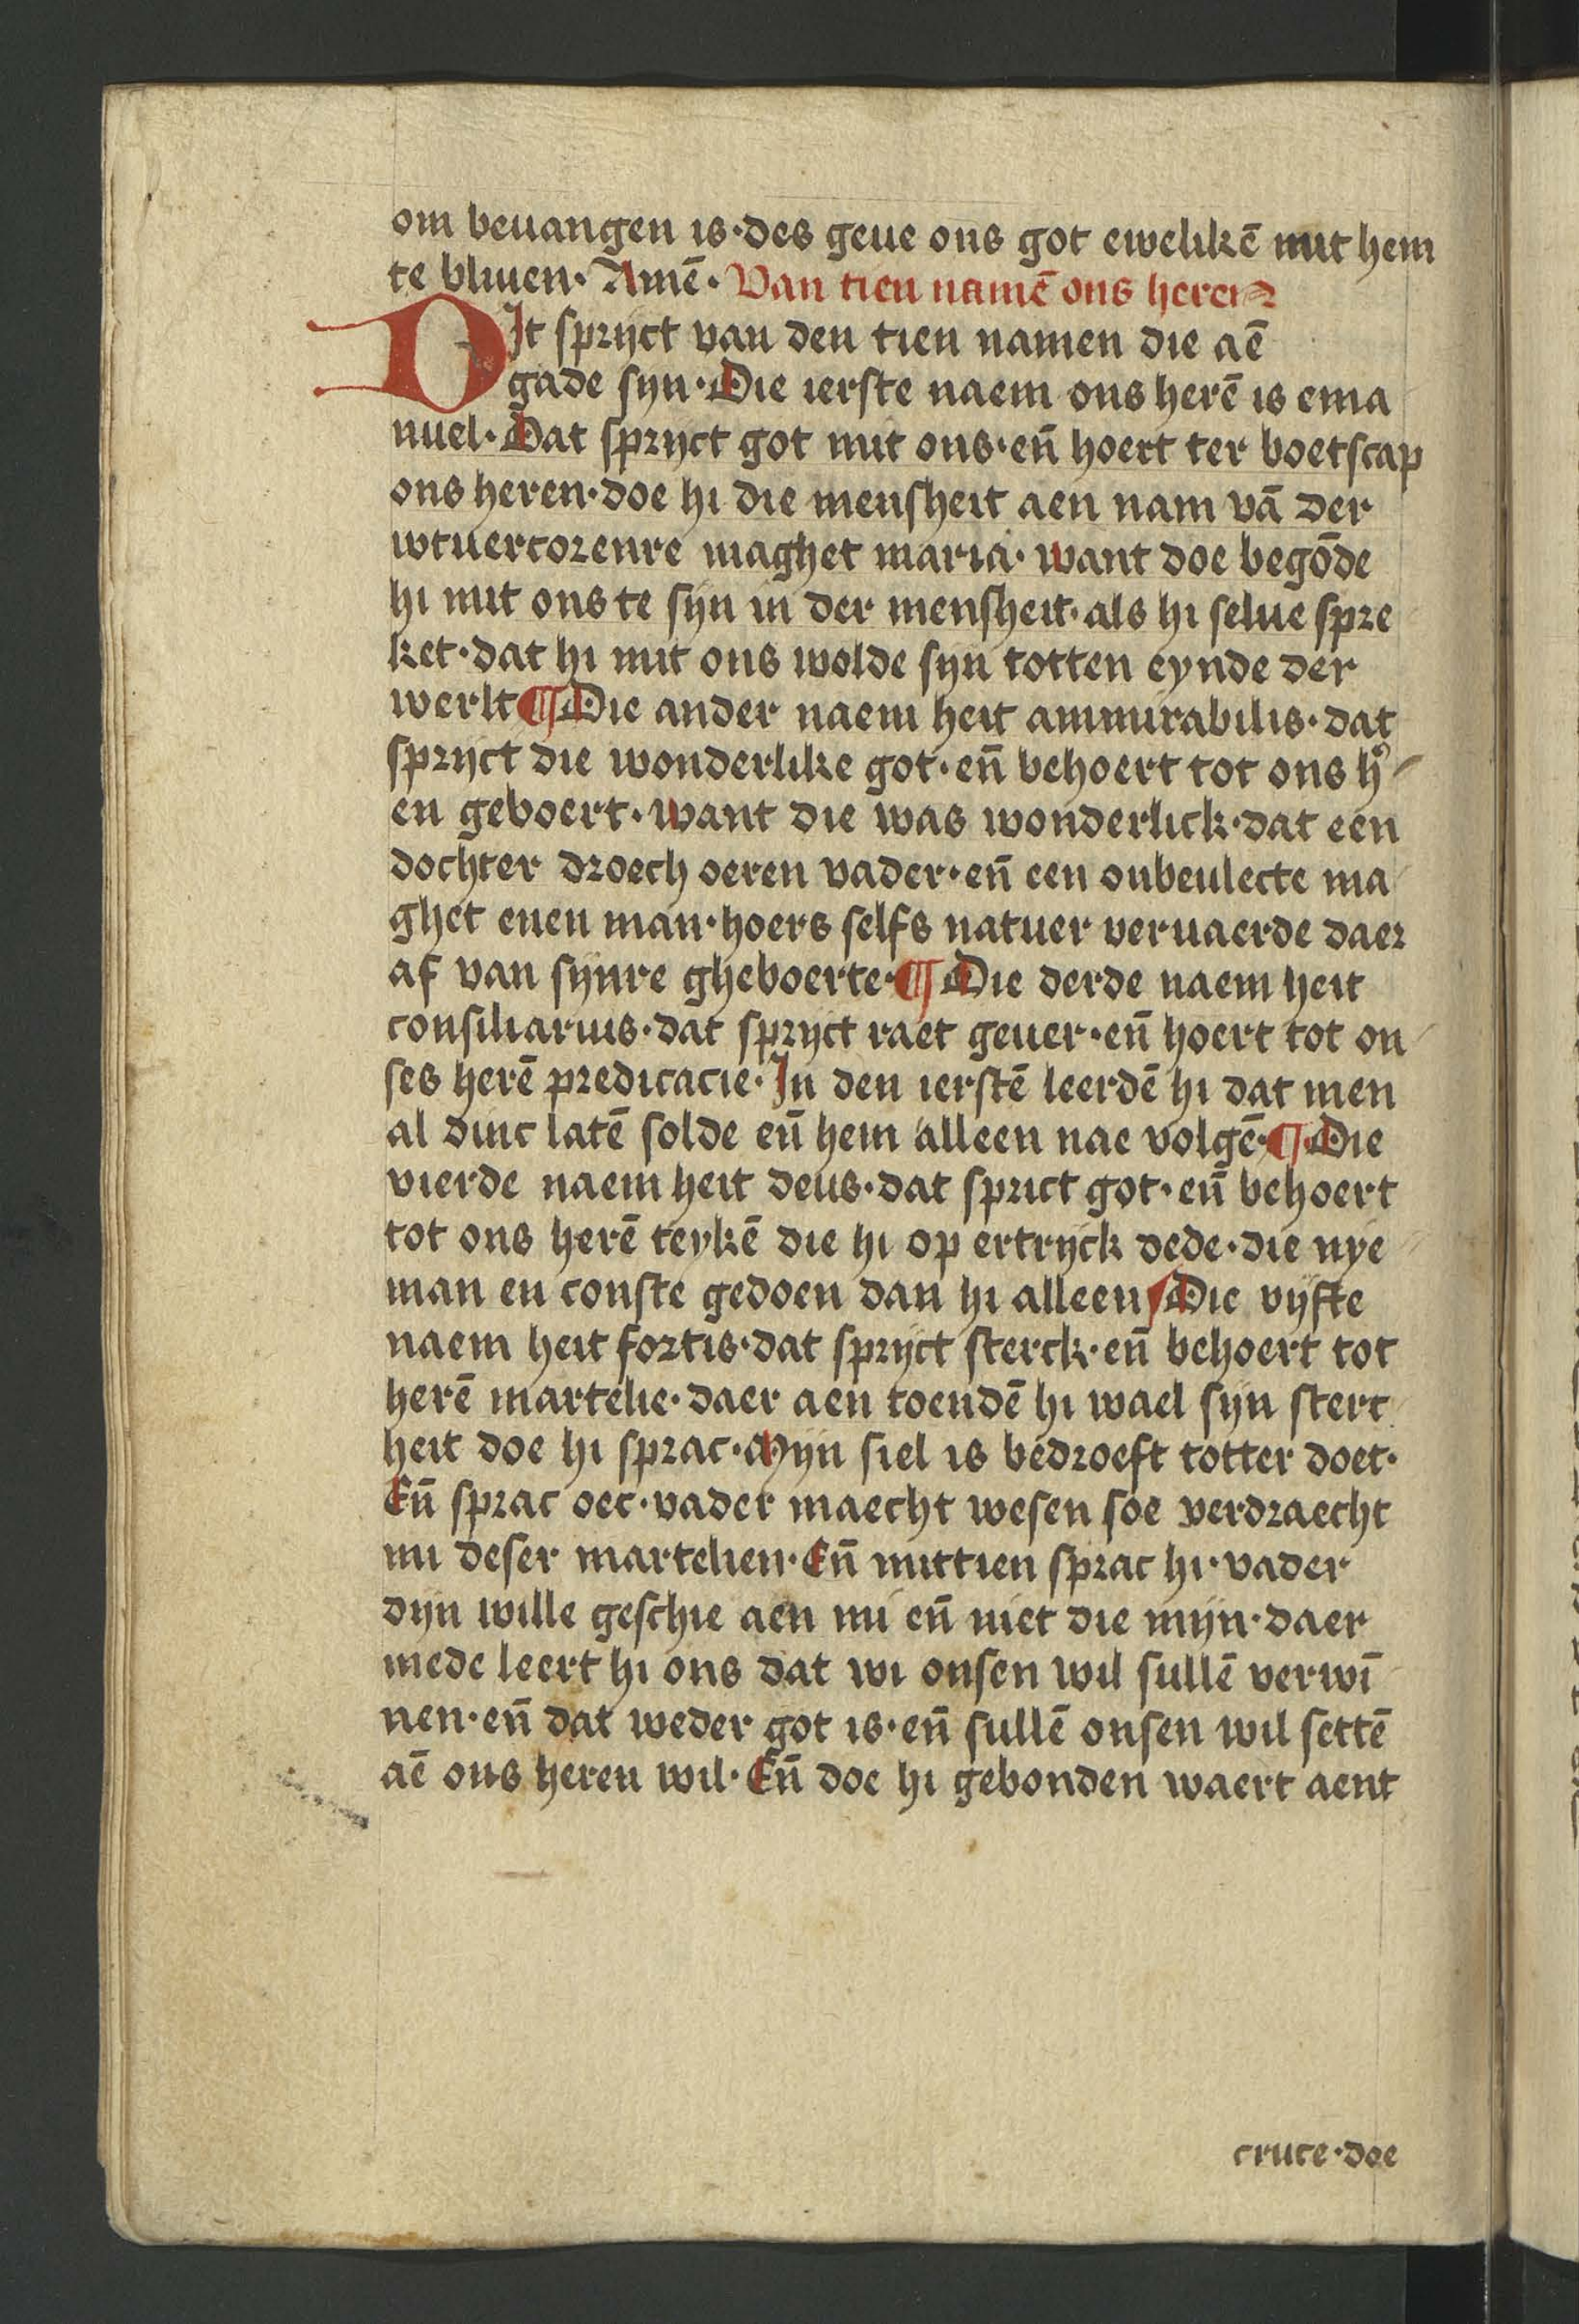 om beuangen is·des geue ons got ewelikē mit hem
te bliuen· Amē· Van tien namē ons heren
DIt sprijct van den tien namen die aē
gade syn· Die ierste naem ons herē is ema
nuel· Dat sprijct got mit ons·en̄ hoert ter boetscap
ons heren·doe hi die mensheit aen nam vā der
wtuercorenre maghet maria· want doe begōde
hi mit ons te sijn in der mensheit·als hi selue spre
ket·dat hi mit ons wolde syn totten eynde der
werlt ¶ Die ander naem heit ammirabilis·dat
sprijct die wonderlike got·en̄ behoert tot ons h̉
en geboert· want die was wonderlick·dat een
dochter droech oeren vader·en̄ een onbeulecte ma
ghet enen man·hoers selfs natuer veruaerde daer
af van sijnre gheboerte· ¶ Die derde naem heit
consiliarius·dat sprijct raet geuer·en̄ hoert tot on
ses herē predicacie· In den ierstē leerdē hi dat men
al dinc latē solde en̄ hem alleen nae volgē· ¶ Die
vierde naem heit deus·dat sprict got·en̄ behoert
tot ons herē teykē die hi op ertryck dede·die nye
man en conste gedoen dan hi alleen Die vijfte
naem heit fortis·dat sprijct sterck·en̄ behoert tot
herē martelie·daer aen toendē hi wael sijn sterc
heit doe hi sprac· Mijn siel is bedroeft totter doet·
En̄ sprac oec·vader maecht wesen soe verdraecht
mi deser martelien· En̄ mittien sprac hi·vader
dijn wille geschie aen mi en̄ niet die mijn·daer
mede leert hi ons dat wi onsen wil sullē verwī
nen·en̄ dat weder got is·en̄ sullē onsen wil settē
aē ons heren wil· En̄ doe hi gebonden waert aent
cruce·doe